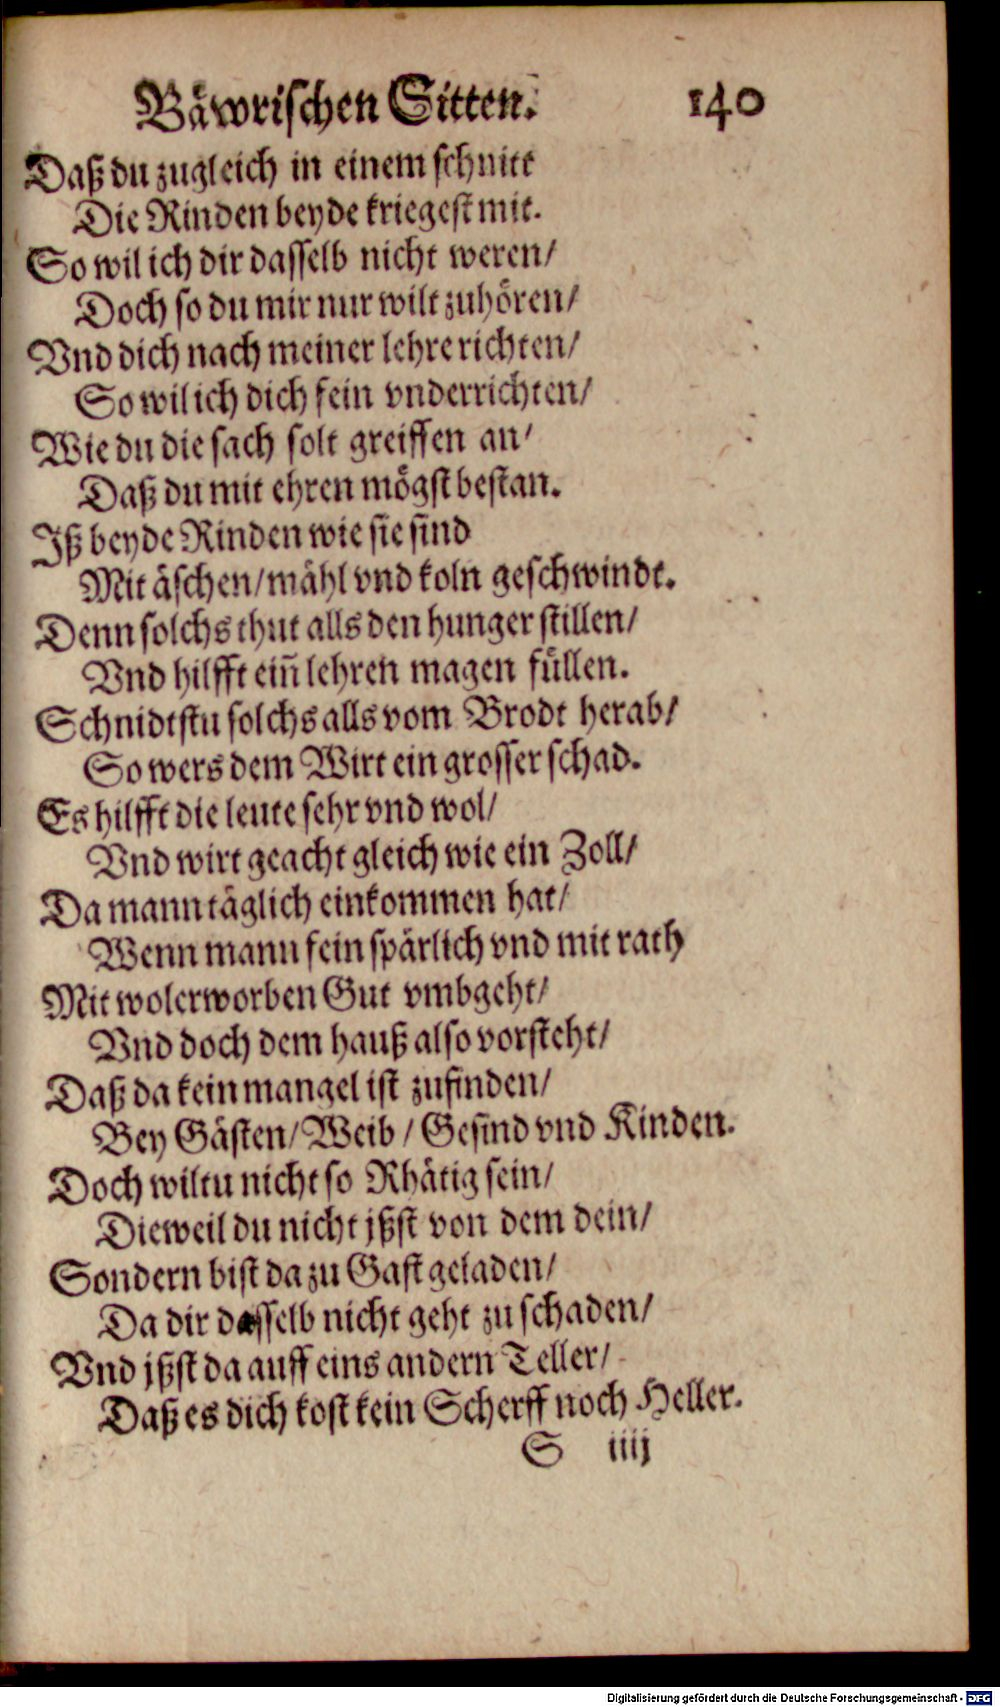 Bäwrischen Sitten. 140
Daß du zugleich in einem schnitt
Die Rinden beyde kriegest mit.
So wil ich dir dasselb nicht weren/
Doch so du mir nur wilt zuhören/
Vnd dich nach meiner lehre richten/
So wil ich dich fein vnderrichten/
Wie du die sach solt greiffen an/
Daß du mit ehren mögst bestan.
Jß beyde Rinden wie sie sind
Mit äschen/mähl vnd koln geschwindt.
Denn solchs thut alls den hunger stillen/
Vnd hilfft eiñ lehren magen füllen.
Schnidtstu solchs alls vom Brodt herab/
So wers dem Wirt ein grosser schad.
Es hilfft die leute sehr vnd wol/
Vnd wirt geacht gleich wie ein Zoll/
Da mann täglich einkommen hat/
Wenn mann fein spärlich vnd mit rath
Mit wolerworben Gut vmbgeht/
Vnd doch dem hauß also vorsteht/
Daß da kein mangel ist zufinden/
Bey Gästen/Weib/Gesind vnd Kinden.
Doch wiltu nicht so Rhätig sein/
Dieweil du nicht jßst von dem dein/
Sondern bist da zu Gast geladen/
Da dir dasselb nicht geht zu schaden/
Vnd jßst da auff eins andern Teller/
Daß es dich kost kein Scherff noch Heller.
S iiij
Digitalisierung gefördert durch die Deutsche Forschungsgemeinschaft - DFG